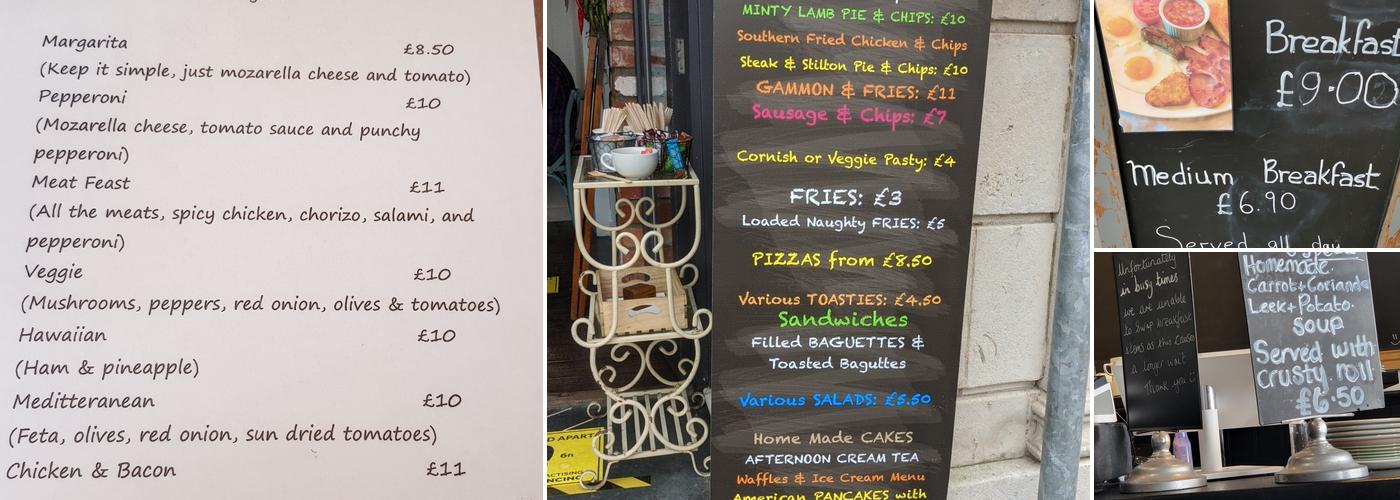 Margarita £8.50
(Keep it simple, just mozarella cheese and tomato)
Pepperoni £10
(Mozarella cheese, tomato sauce and punchy
pepperoni)
Meat Feast £11
(All the meats, spicy chicken, chorizo, salami, and
pepperoni)
Veggie £10
(Mushrooms, peppers, red onion, olives & tomatoes)
Hawaiian £10
(Ham & pineapple)
Meditteranean £10
(Feta, olives, red onion, sun dried tomatoes)
Chicken & Bacon £11
MINTY LAMB PIE & CHIPS: £10
Southern Fried Chicken & Chips
Steak & Stilton Pie & Chips: £10
GAMMON & FRIES: £11
Sausage & Chips: £7
Cornish or Veggie Pasty: £4
FRIES: £3
Loaded Naughty FRIES: £5
PIZZAS from £8.50
Various TOASTIES: £4.50
Sandwiches
Filled BAGUETTES &
Toasted Baguttes
Various SALADS: £5.50
Home Made CAKES
AFTERNOON CREAM TEA
Waffles & Ice Cream Menu
American PANCAKES with
D APART
6ft
Breakfast
£9.00
Medium Breakfast
£6.90
Served all day
Unfortunately
in busy times
we are unable
to swap breakfast
items as this causes
a longer wait
Thank you
Homemade.
Carrot+Coriande
Leek+Potato.
Soup
Served with
Crusty roll
£6.50.